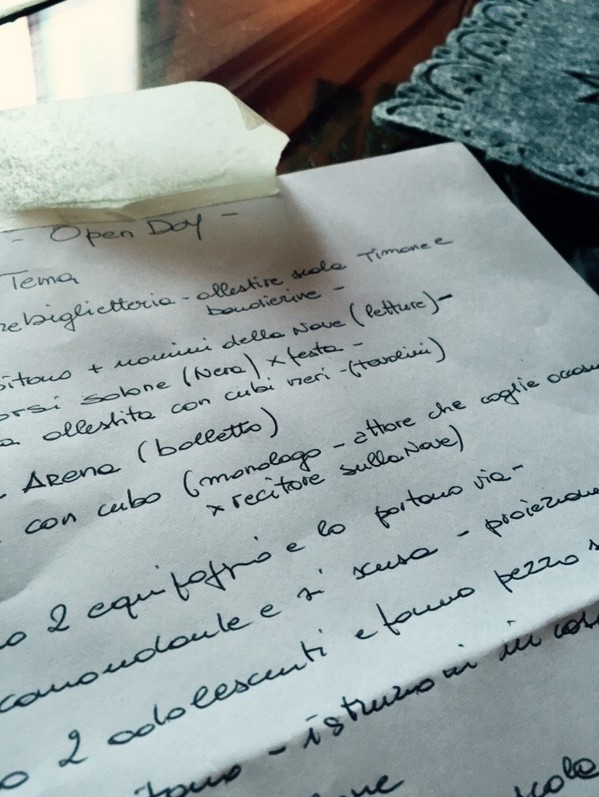 - Open Day -
Tema
rebiglietteria - allestire scala Timone e
bandierine -
pitano + uomini della Nave (letture) -
orsi salone (Nera) x festa -
a allestita con cubi neri - (tavolini)
- Arena (balletto)
con cubo (monologo - attore che coglie occas
x recitare sulla Nave)
o 2 equipaggio e lo portano via -
comandante e si scusa - proiezione
o 2 adolescenti e fanno pezzo s
itano - istruzioni in
scala